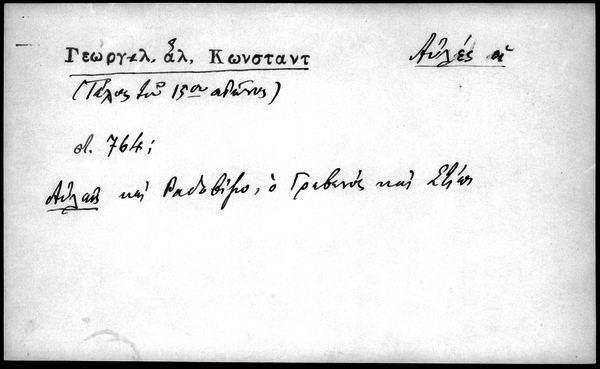 Γεωργιλ. ἅλ. Κωνσταντ Αὐλές αἱ
(Τέλος τοῦ 15ου αἰῶνος)
στ. 764;
Αὐλαῖς καὶ Ραδοβίζιο, ὁ Γρεβενός καὶ